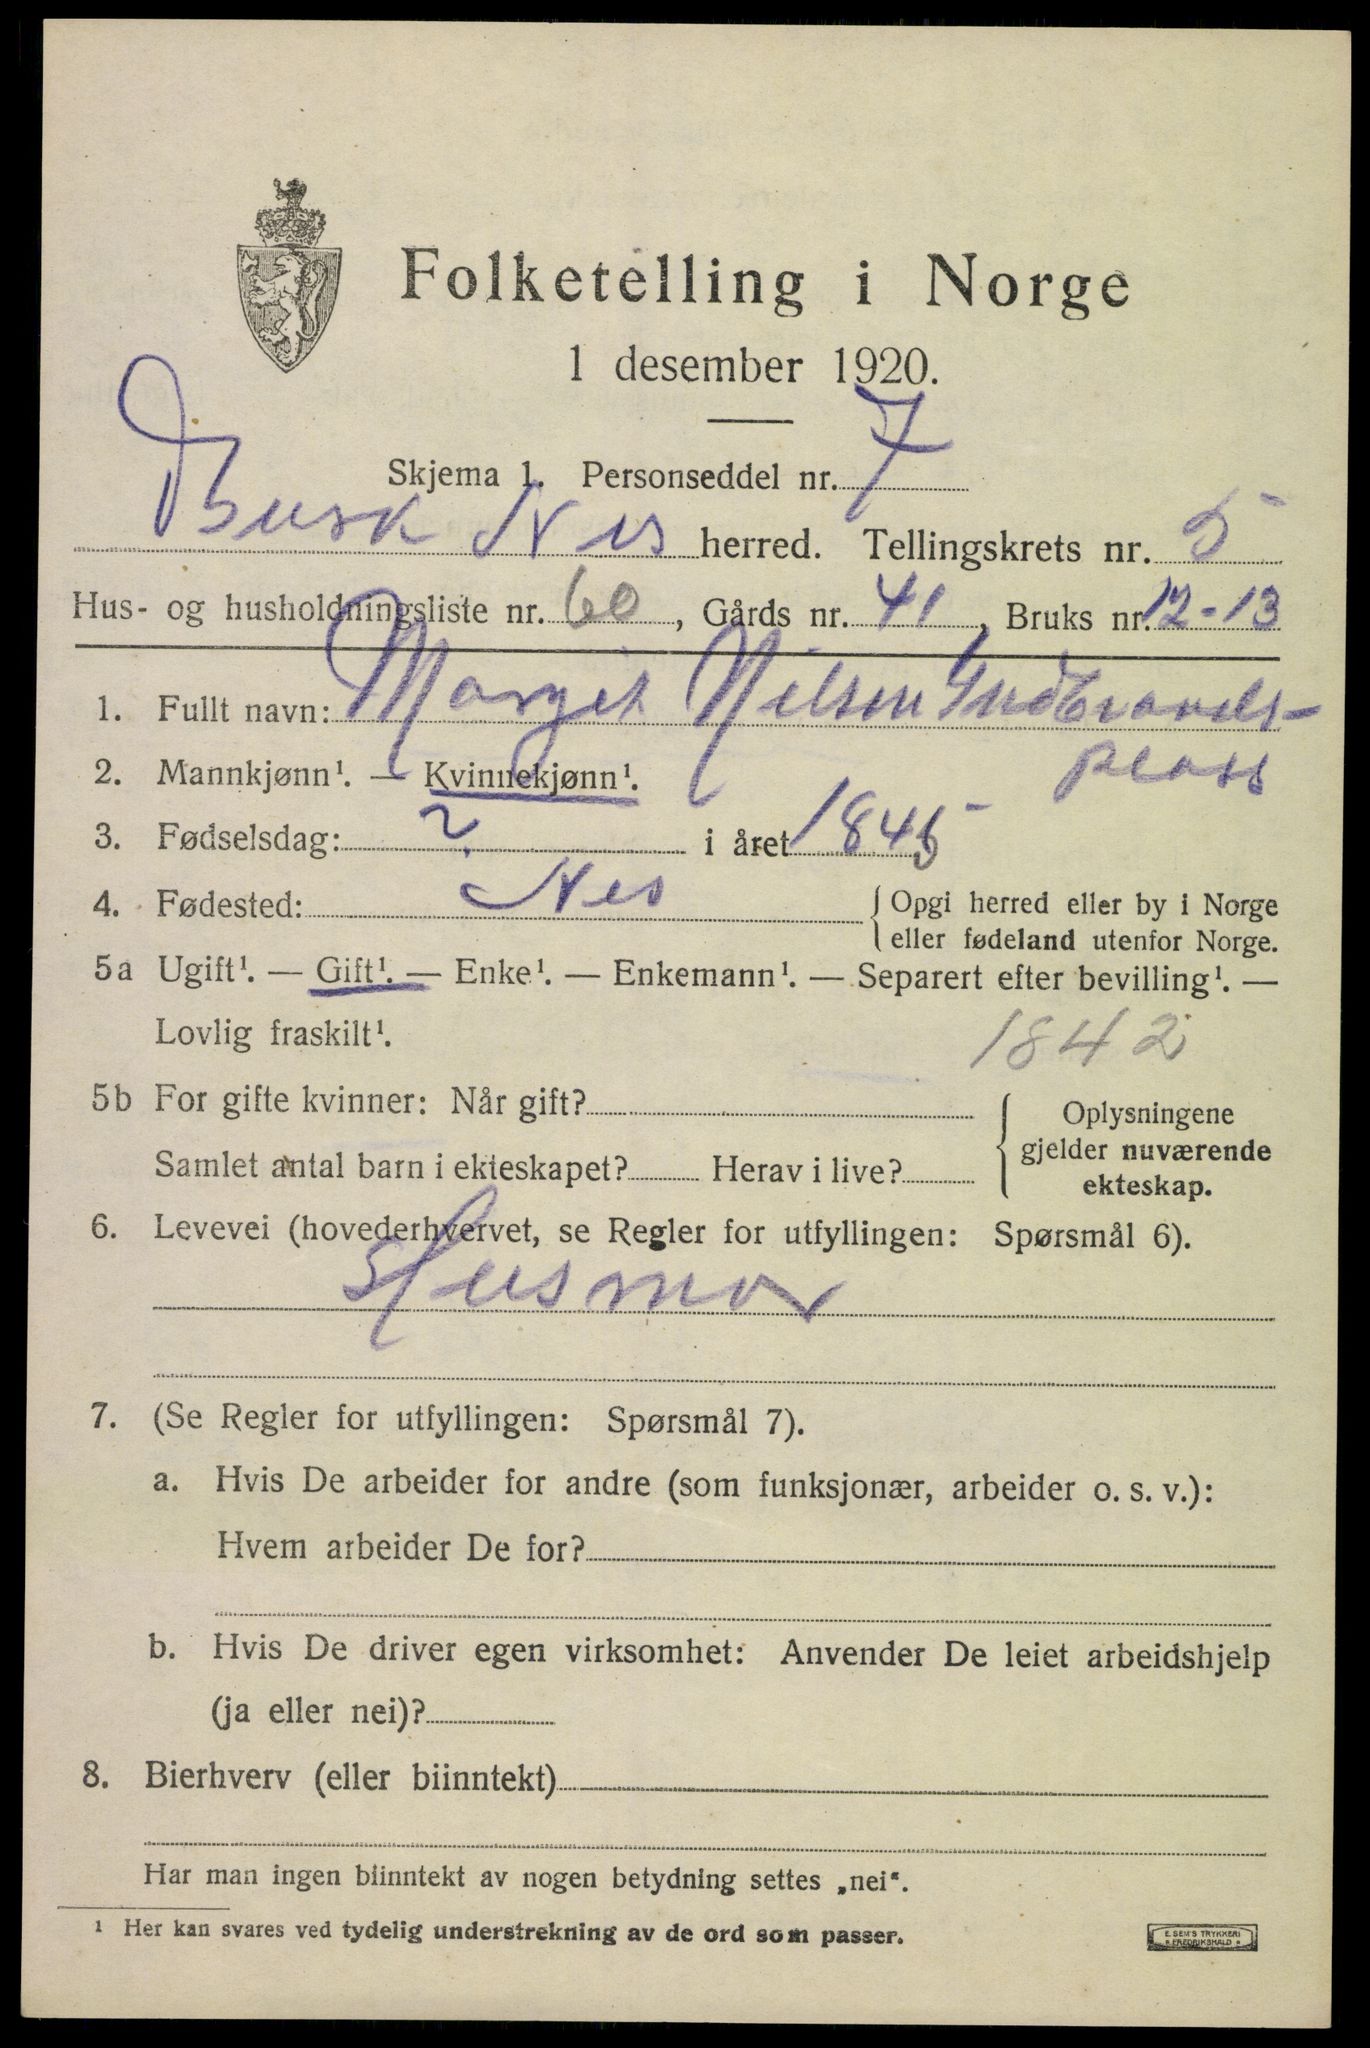 Folketelling i Norge
1 desember 1920.
Skjema 1. Personseddel nr. 7
Busk Nes herred. Tellingskrets nr. 5
Hus- og husholdningsliste nr. 60, Gårds nr. 41, Bruks nr. 12-13
1. Fullt navn: Margit Nilsen Indbrands-
plass
2. Mannkjønn¹. — Kvinnekjønn¹.
3. Fødselsdag: ? i året 1845
4. Fødested: Nes { Opgi herred eller by i Norge
eller fødeland utenfor Norge.
5a Ugift¹. — Gift¹. — Enke¹. — Enkemann¹. — Separert efter bevilling¹. —
Lovlig fraskilt¹. 1842
5b For gifte kvinner: Når gift? { Oplysningene
gjelder nuværende
Samlet antal barn i ekteskapet? Herav i live? ekteskap.
6. Levevei (hovederhvervet, se Regler for utfyllingen: Spørsmål 6).
Husmor
7. (Se Regler for utfyllingen: Spørsmål 7).
a. Hvis De arbeider for andre (som funksjonær, arbeider o. s. v.):
Hvem arbeider De for?
b. Hvis De driver egen virksomhet: Anvender De leiet arbeidshjelp
(ja eller nei)?
8. Bierhverv (eller biinntekt)
Har man ingen biinntekt av nogen betydning settes „nei“.
¹ Her kan svares ved tydelig understrekning av de ord som passer.
E. SEM'S TRYKKERI
FREDRIKSHALD